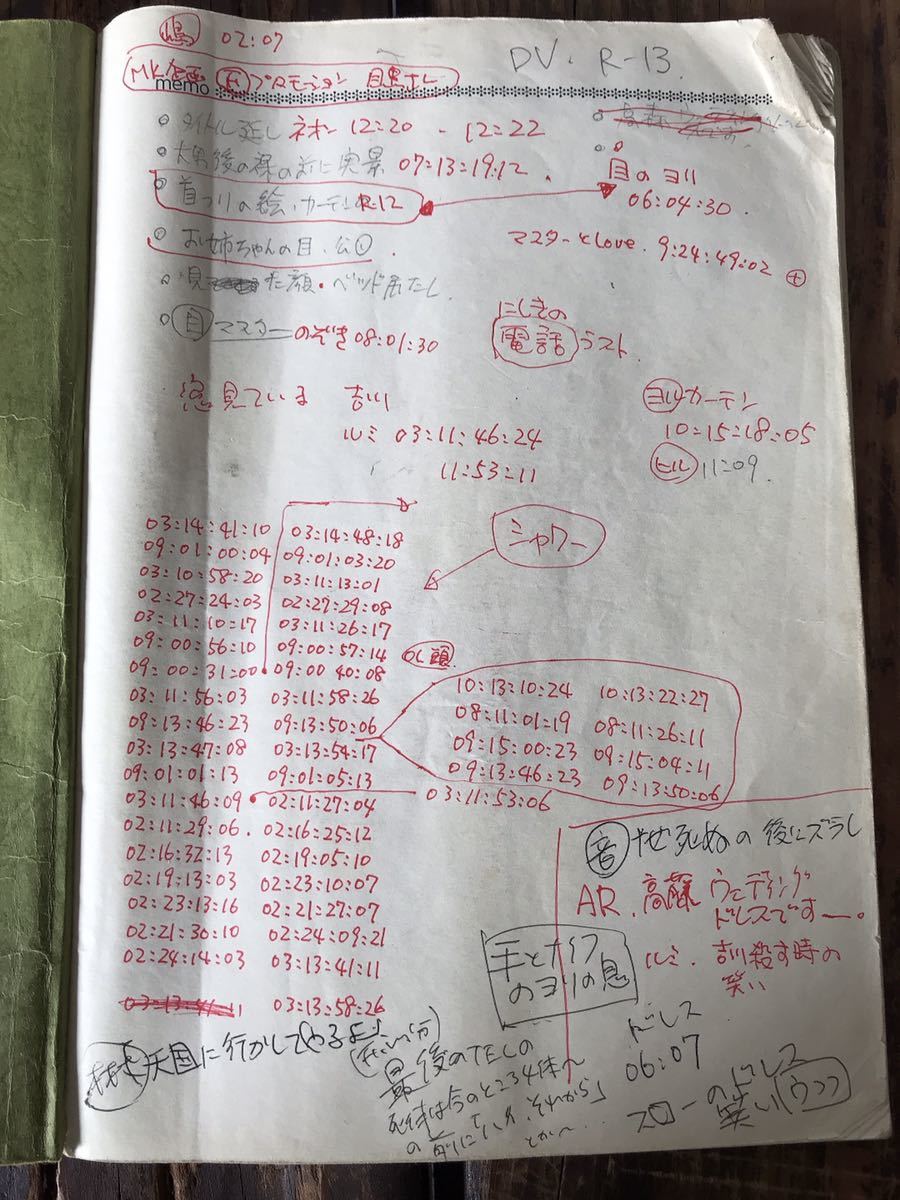 02:07
DV. R-13.
MK企画 プロモーション
memo
タイトル延し ネオー 12:20 - 12:22
大男後の裸の前に実景 07:13:19:12.
目のヨリ
06:04:30
首つりの絵、カーテン R-12
お姉ちゃんの目、
マスターとLove. 9:24:49:02
た顔・ベッド
目 マスターのぞき 08:01:30
にしきの
電話 ラスト
見ている 吉川
ルミ 03:11:46:24
11:53:11
ヨルカーテン
10:15:18:05
ヒル 11:09
シャワー
03:14:41:10 03:14:48:18
09:01:00:04 09:01:03:20
03:10:58:20 03:11:13:01
02:27:24:03 02:27:29:08
03:11:10:17 03:11:26:17
09:00:56:10 09:00:57:14
09:00:31:00 09:00 40:08
03:11:56:03 03:11:58:26
09:13:46:23 09:13:50:06
03:13:47:08 03:13:54:17
09:01:01:13 09:01:05:13
03:11:46:09 02:11:27:04
02:11:29:06. 02:16:25:12
02:16:32:13 02:19:05:10
02:19:13:03 02:23:10:07
02:23:13:16 02:21:27:07
02:21:30:10 02:24:09:21
02:24:14:03 03:13:41:11
03:13:41:11 03:13:58:26
OL頭
10:13:10:24 10:13:22:27
08:11:01:19 08:11:26:11
09:15:00:23 09:15:04:11
09:13:46:23 09:13:50:06
03:11:53:06
音 死ぬの後にズラし
AR. 高藤 ウェディング
ドレスですー。
ルミ. 吉川殺す時の
笑い
手とナイフ
のヨリの息
天国に行かしてやるよ
最後のTELの
死体は今のところ4体〜
の前に それから」
とか〜
ドレス
06:07
スローのドレス
笑い(ウフフ)